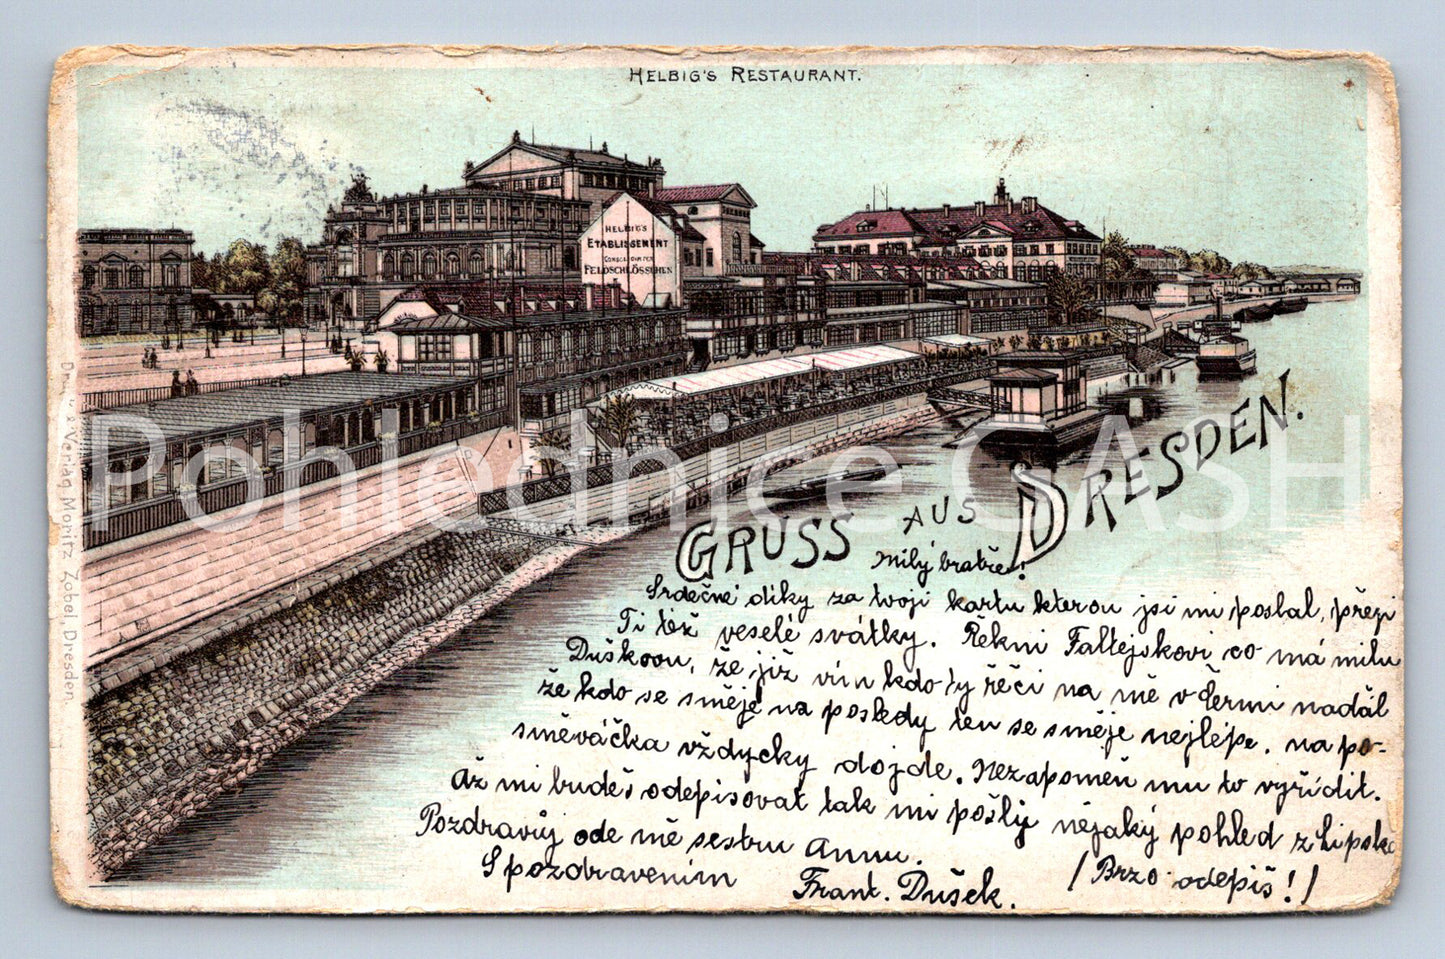 HELBIG'S RESTAURANT.
HELBIG'S
ETABLISSEMENT
FELDSCHLÖSSCHEN
Druck & Verlag Moritz Zobel, Dresden
Pohlednice CASH
GRUSS AUS DRESDEN.
Milý bratře!
Srdečné díky za tvoji kartu kterou jsi mi poslal, přeji
Ti též veselé svátky. Řekni Faltejskovi co má milu
Duškovu, že již vím kdo ty řeči na mě v Černi nadál
že kdo se směje na posledy ten se směje nejlépe. na po-
směváčka vždycky dojde. Nezapomeň mu to vyřídit.
Až mi budeš odepisovat tak mi pošly nějaký pohled z Lipska
Pozdravůj ode mě sestru Annu.
S pozdravením Frant. Dušek. / Brzo odepiš! /